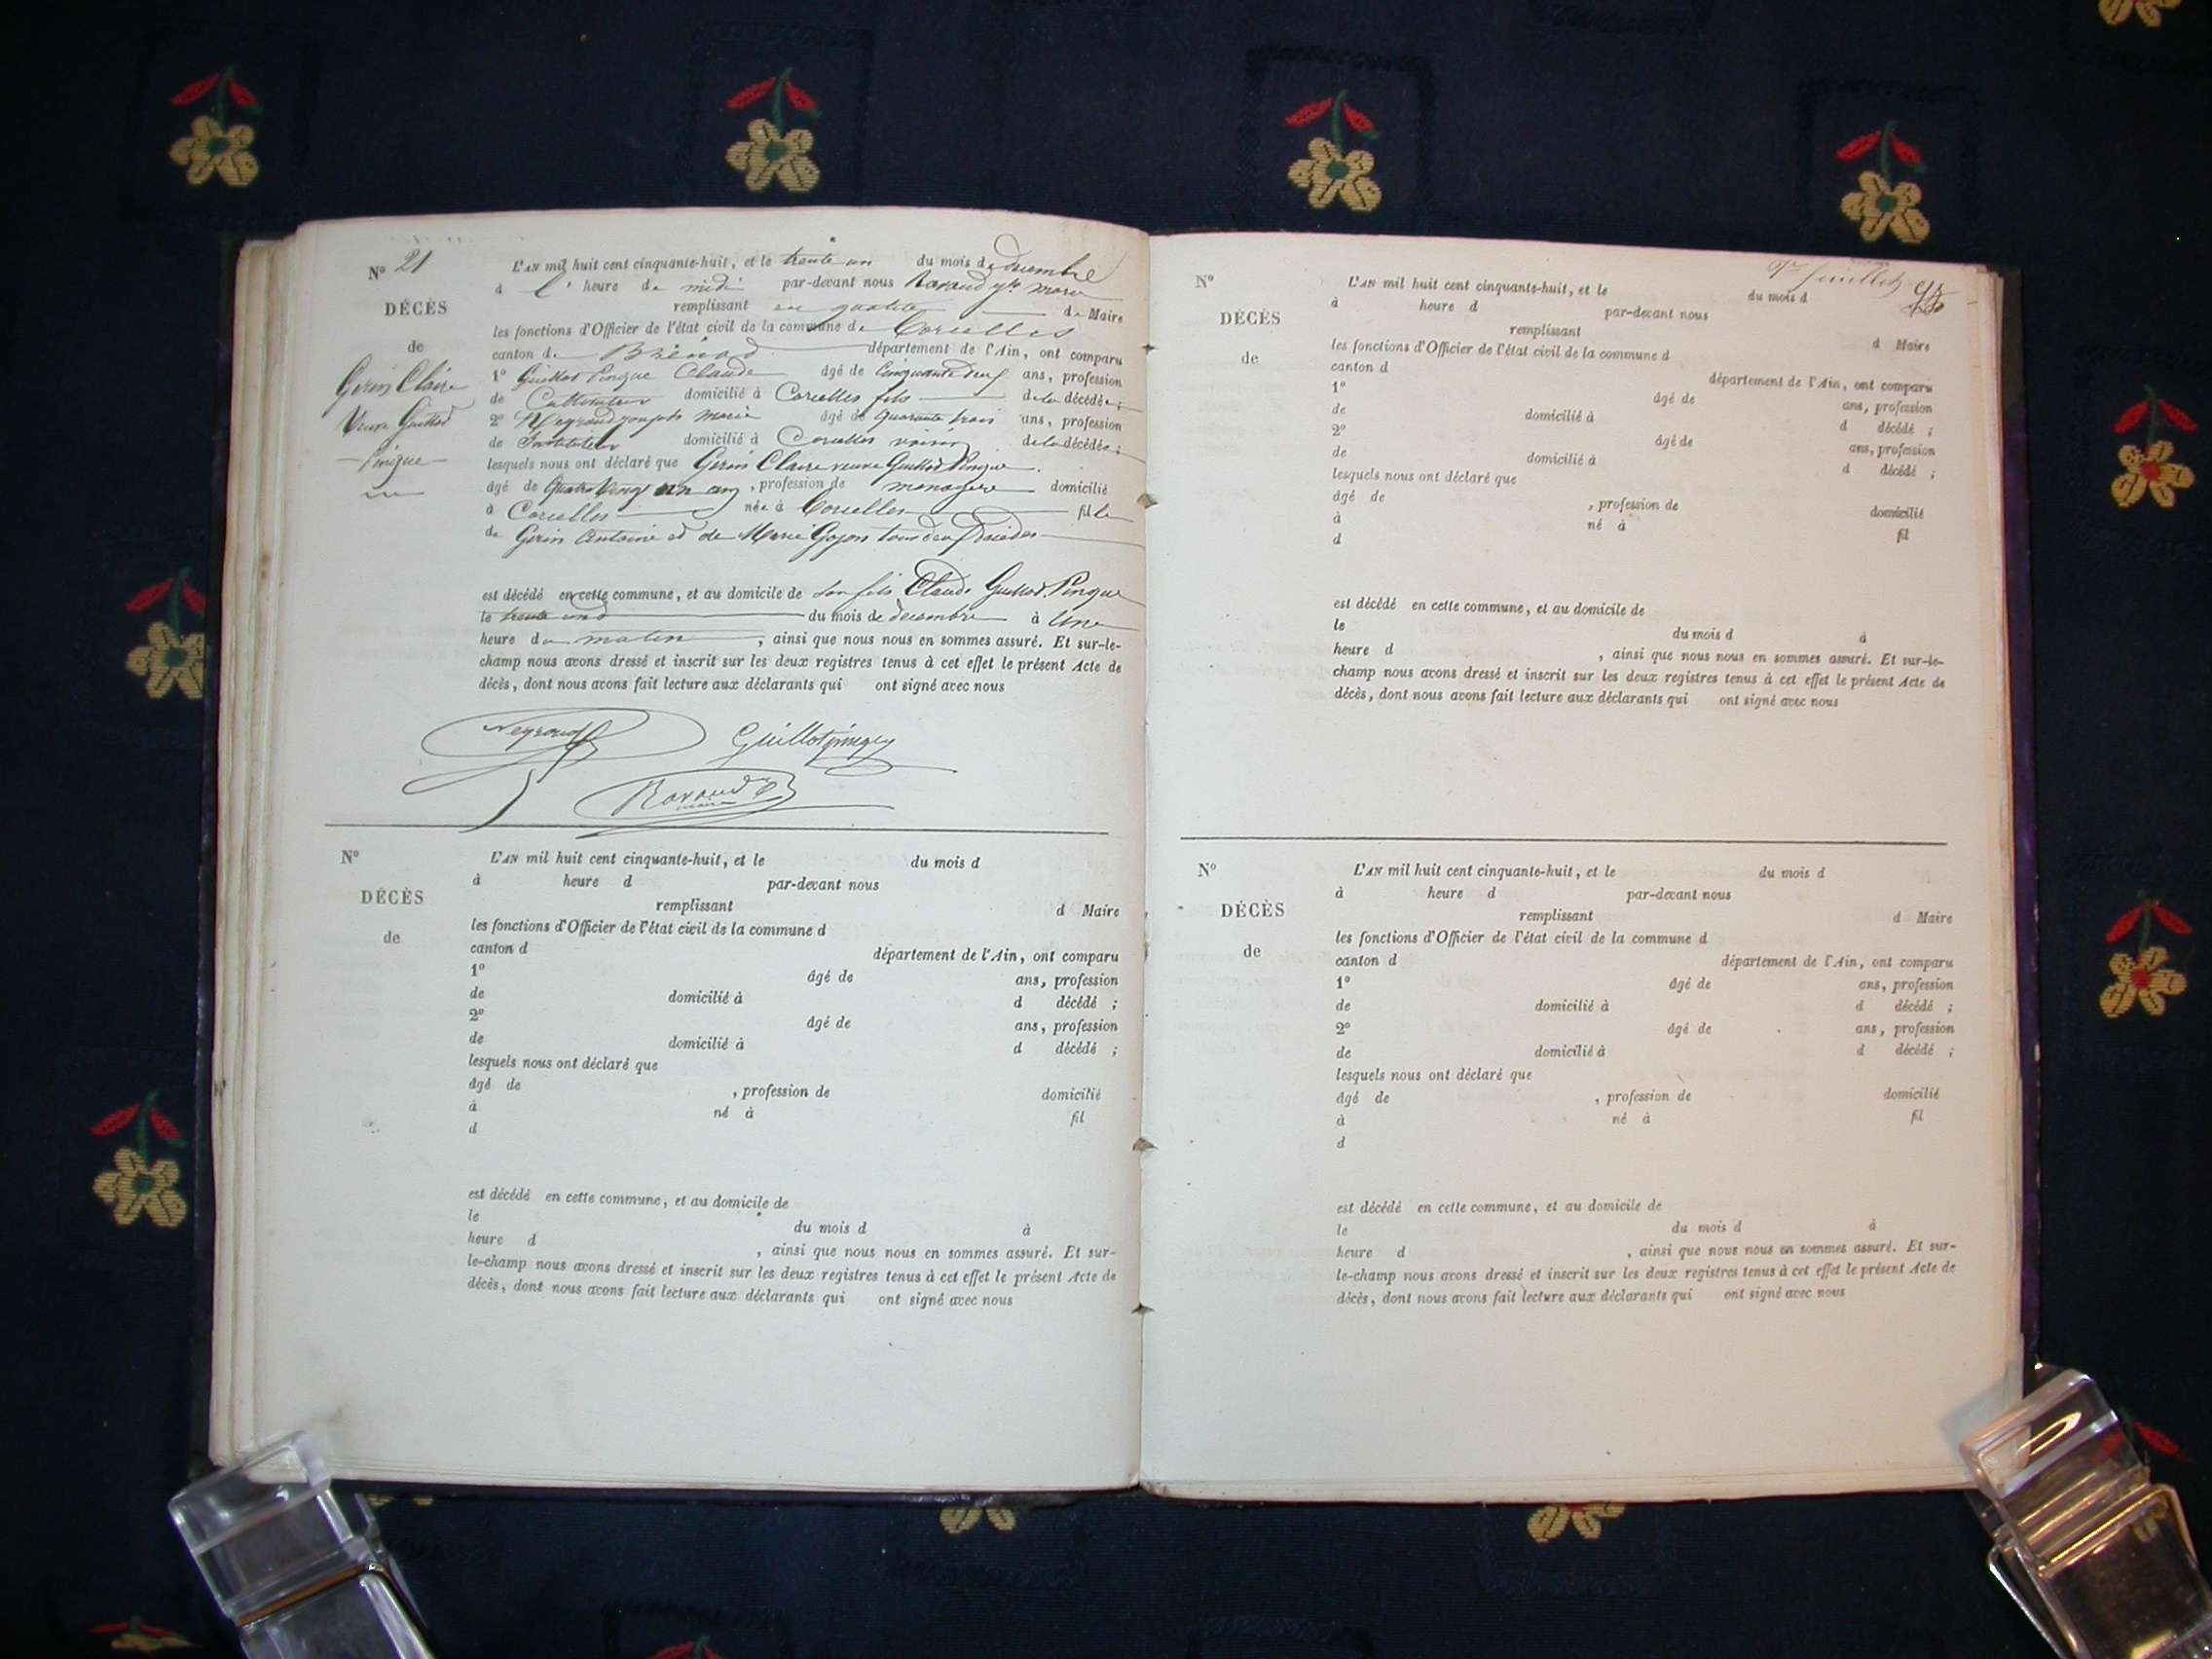 N° 21
DÉCÈS
de
Gerin Claire
Veuve Guillot
Pingue
L'AN mil huit cent cinquante-huit, et le trente un du mois de decembre
à l' heure de midi par-devant nous Ravaud maire
remplissant en qualité de Maire
les fonctions d'Officier de l'état civil de la commune de Corcelles
canton de Brénod département de l'Ain, ont comparu
1° Guillot Pingue Claude âgé de Cinquante deux ans, profession
de Cultivateur domicilié à Corcelles fils de la décédée;
2° Neyraud joseph marie âgé de quarante trois ans, profession
de Instituteur domicilié à Corcelles voisin de la décédée;
lesquels nous ont déclaré que Gerin Claire veuve Guillot Pingue
âgé de Quatre Vingt un ans, profession de menagere domicilié
à Corcelles née à Corcelles fille
de Gerin Antoine et de Marie Gojon tous deux Décédés
est décédé en cette commune, et au domicile de son fils Claude Guillot Pingue
le trente un du mois de decembre à Une
heure du matin, ainsi que nous nous en sommes assuré. Et sur-le-
champ nous avons dressé et inscrit sur les deux registres tenus à cet effet le présent Acte de
décès, dont nous avons fait lecture aux déclarants qui ont signé avec nous
Neyraud Guillotpinguy
Ravaud
maire
N°
DÉCÈS
de
L'AN mil huit cent cinquante-huit, et le du mois d
à heure d par-devant nous
remplissant d Maire
les fonctions d'Officier de l'état civil de la commune d
canton d département de l'Ain, ont comparu
1° âgé de ans, profession
de domicilié à d décédé ;
2° âgé de ans, profession
de domicilié à d décédé ;
lesquels nous ont déclaré que
âgé de , profession de domicilié
à né à fil
d
est décédé en cette commune, et au domicile de
le du mois d à
heure d , ainsi que nous nous en sommes assuré. Et sur-
le-champ nous avons dressé et inscrit sur les deux registres tenus à cet effet le présent Acte de
décès, dont nous avons fait lecture aux déclarants qui ont signé avec nous
feuillet
N°
DÉCÈS
de
L'AN mil huit cent cinquante-huit, et le du mois d
à heure d par-devant nous
remplissant d Maire
les fonctions d'Officier de l'état civil de la commune d
canton d département de l'Ain, ont comparu
1° âgé de ans, profession
de domicilié à d décédé ;
2° âgé de ans, profession
de domicilié à d décédé ;
lesquels nous ont déclaré que
âgé de , profession de domicilié
à né à fil
d
est décédé en cette commune, et au domicile de
le du mois d à
heure d , ainsi que nous nous en sommes assuré. Et sur-le-
champ nous avons dressé et inscrit sur les deux registres tenus à cet effet le présent Acte de
décès, dont nous avons fait lecture aux déclarants qui ont signé avec nous
N°
DÉCÈS
de
L'AN mil huit cent cinquante-huit, et le du mois d
à heure d par-devant nous
remplissant d Maire
les fonctions d'Officier de l'état civil de la commune d
canton d département de l'Ain, ont comparu
1° âgé de ans, profession
de domicilié à d décédé ;
2° âgé de ans, profession
de domicilié à d décédé ;
lesquels nous ont déclaré que
âgé de , profession de domicilié
à né à fil
d
est décédé en cette commune, et au domicile de
le du mois d à
heure d , ainsi que nous nous en sommes assuré. Et sur-
le-champ nous avons dressé et inscrit sur les deux registres tenus à cet effet le présent Acte de
décès, dont nous avons fait lecture aux déclarants qui ont signé avec nous